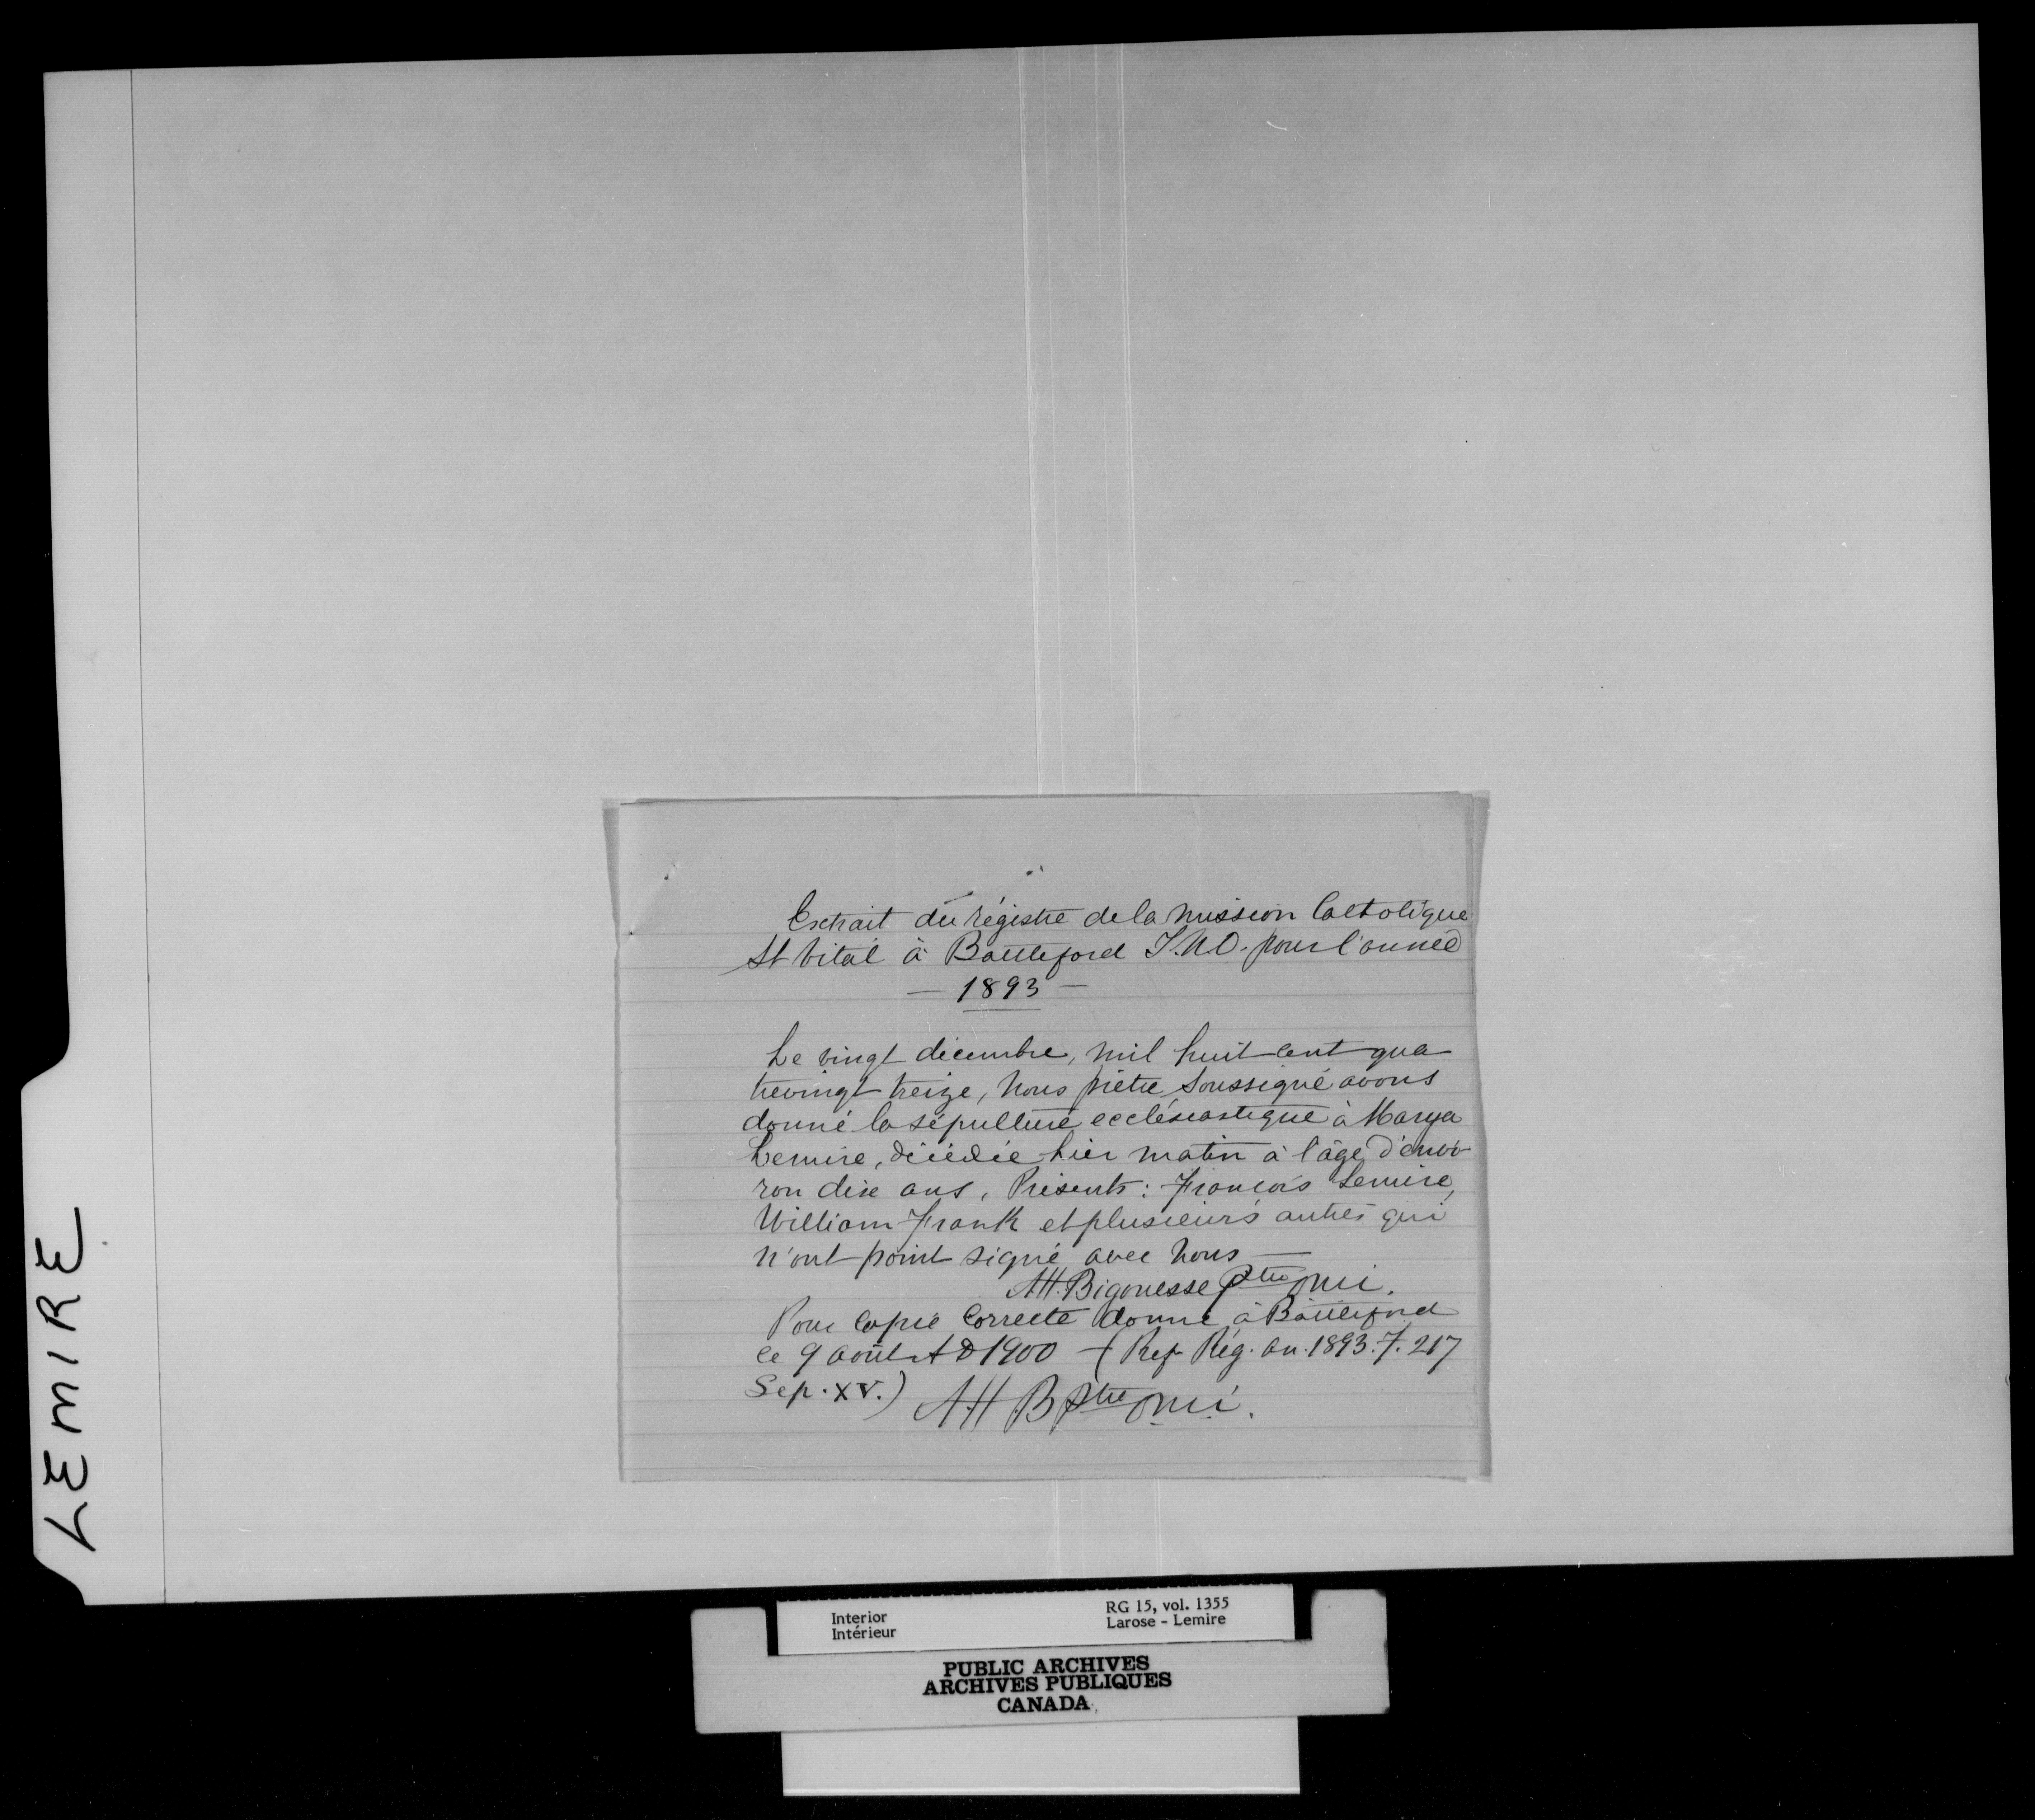 Extrait du régistre de la mission Catholique
St Vital à Battleford T.N.O. pour l'année
— 1893 —
Le vingt décembre, mil huit cent qua
trevingt treize, Nous prêtre soussigné avons
donné la sépulture ecclésiastique à Marya
Lemire, décédée hier matin à l'âge d'envi-
ron dix ans, Présents: François Lemire,
William Frank et plusieurs autres qui
n'ont point signé avec nous —
AH. Bigonesse Ptre omi.
Pour copie correcte donné à Battleford
ce 9 août AD 1900 — (Ref Rég. an. 1893. F. 217
Sep. XV.) AH B Ptre omi.
LEMIRE
Interior RG 15, vol. 1355
Intérieur Larose - Lemire
PUBLIC ARCHIVES
ARCHIVES PUBLIQUES
CANADA